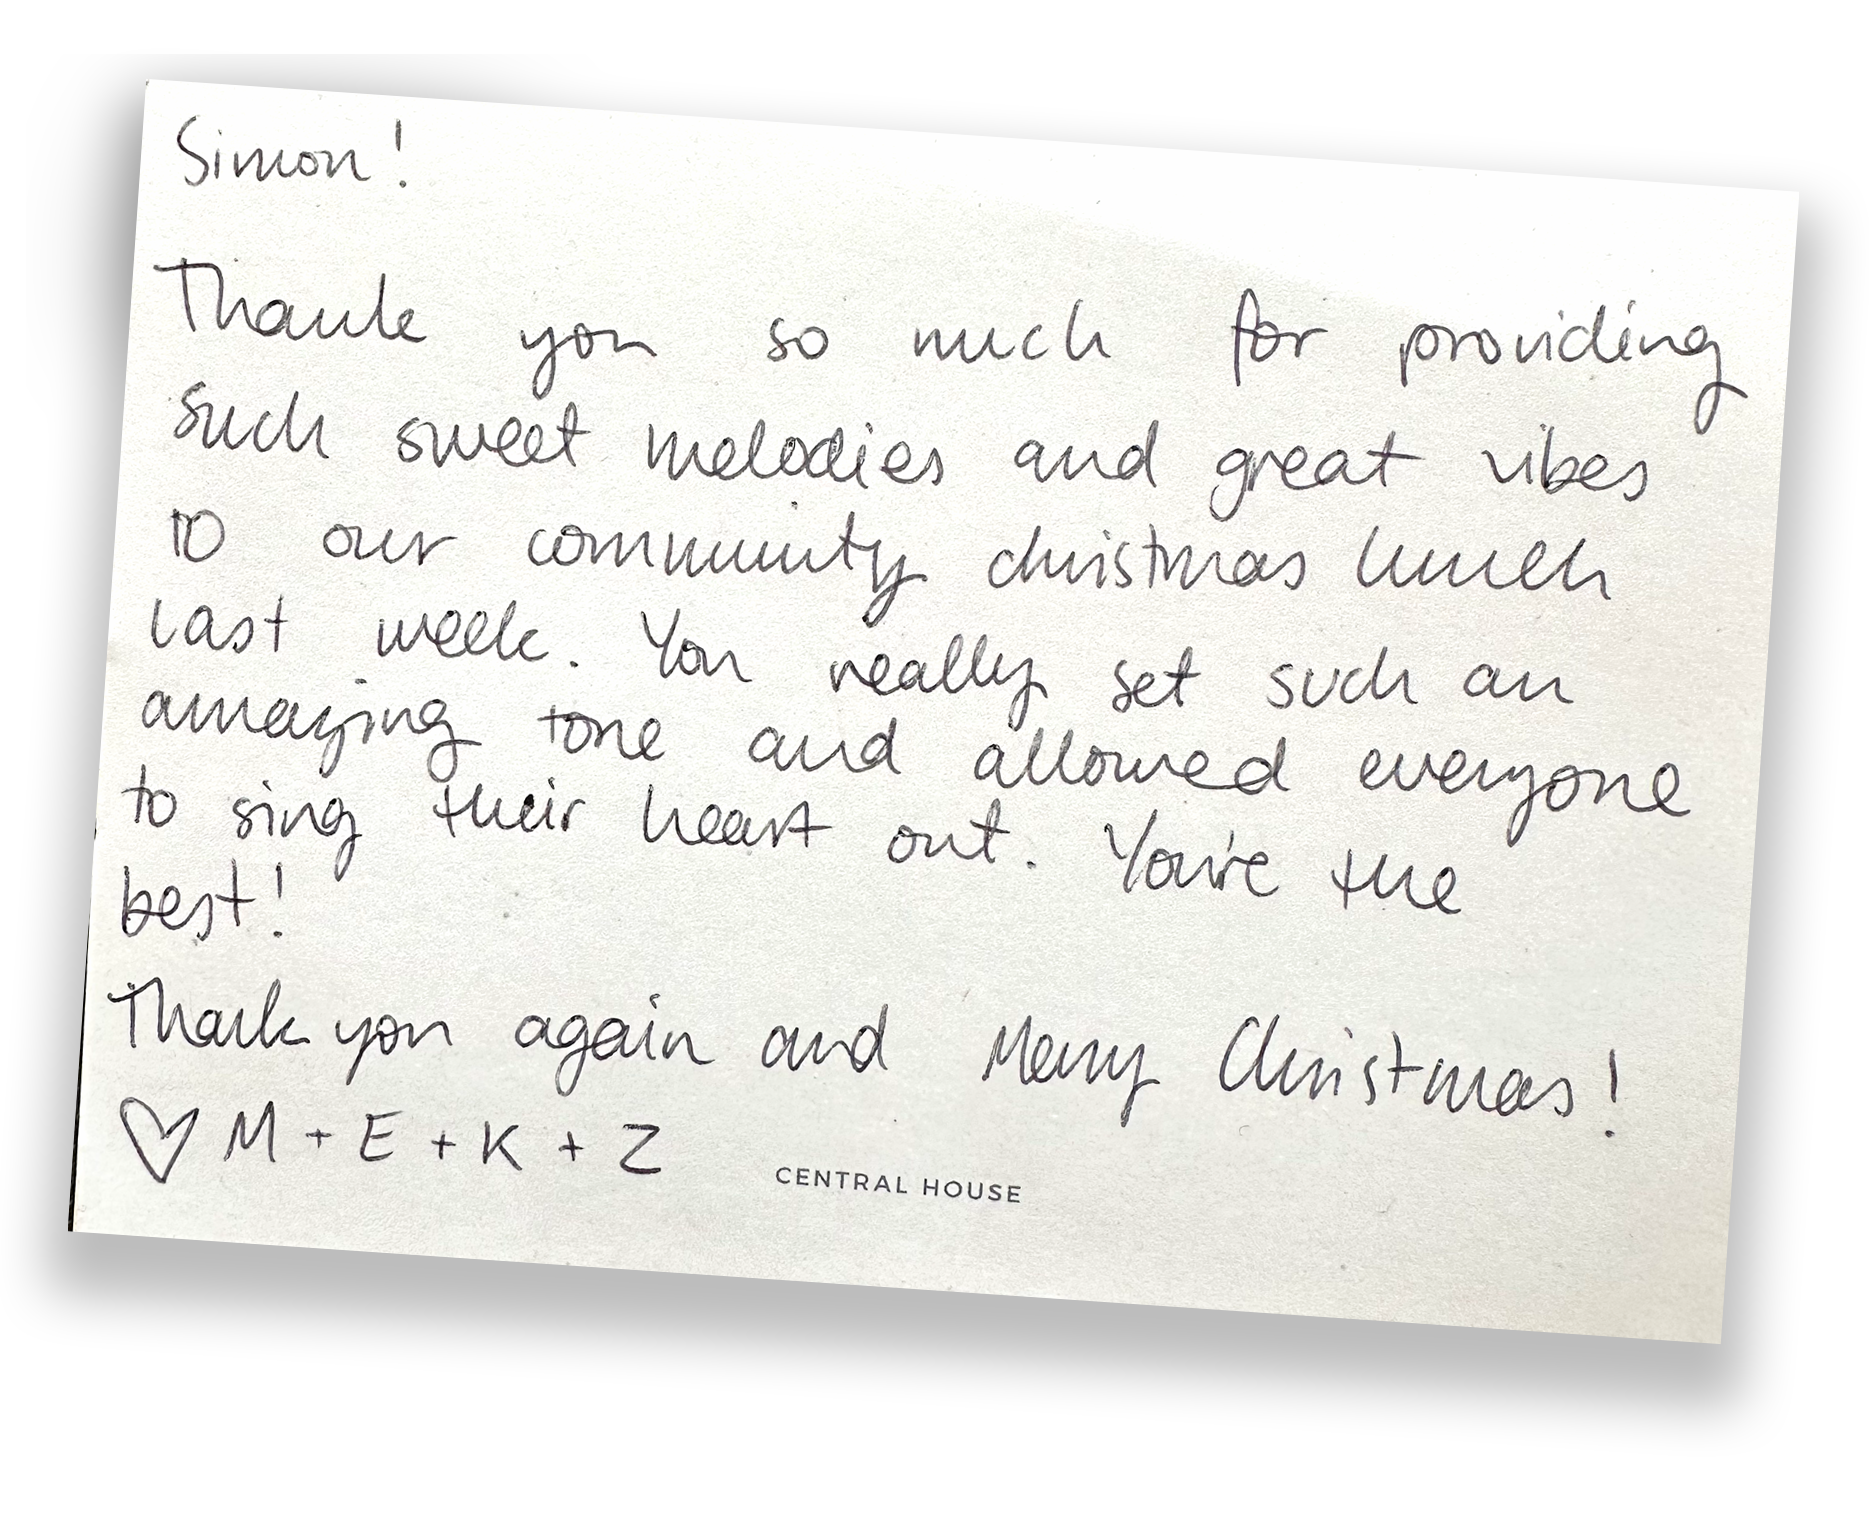 Simon!
Thank you so much for providing
such sweet melodies and great vibes
to our community christmas lunch
last week. You really set such an
amazing tone and allowed everyone
to sing their heart out. You're the
best!
Thank you again and Merry Christmas!
♡ M + E + K + Z
CENTRAL HOUSE